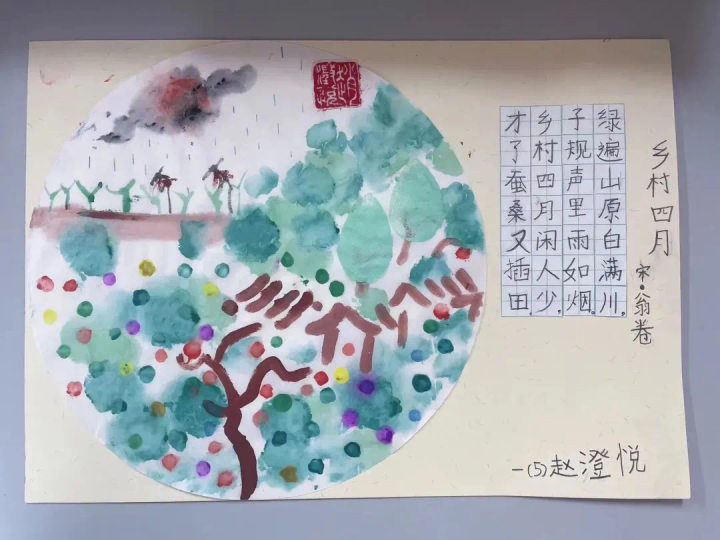 乡村四月
宋·翁卷
绿遍山原白满川。
子规声里雨如烟。
乡村四月闲人少，
才了蚕桑又插田。
一(5)赵澄悦